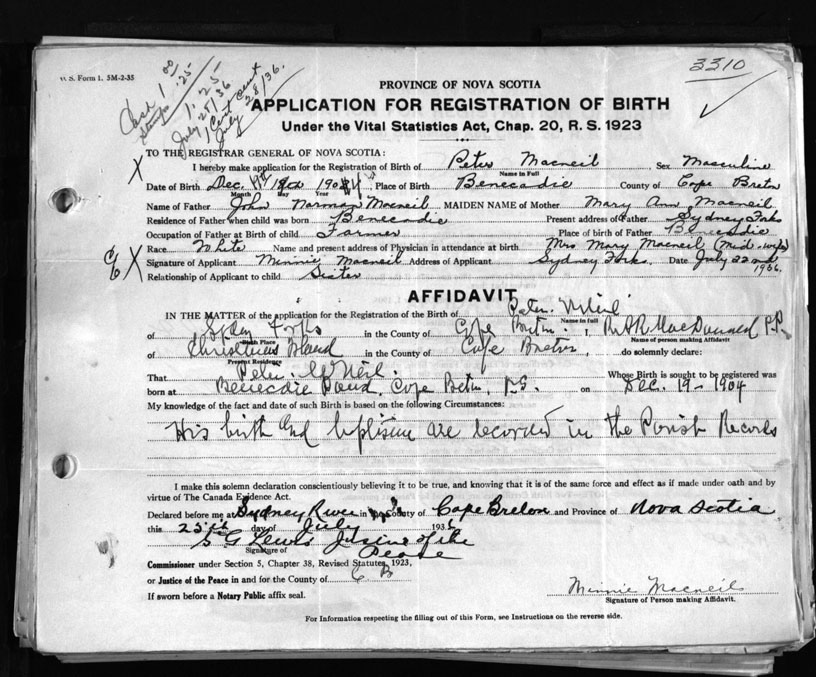 V. S. Form 1. 5M-2-35
3310
Cash 1 00
Stamps .25
1.25
July 25/36
1 Cent Cent
July 28/36.
PROVINCE OF NOVA SCOTIA
APPLICATION FOR REGISTRATION OF BIRTH
Under the Vital Statistics Act, Chap. 20, R. S. 1923
TO THE REGISTRAR GENERAL OF NOVA SCOTIA:
X I hereby make application for the Registration of Birth of Peter Macneil Sex Masculine
Name in Full
Date of Birth Dec. 19 1904 Place of Birth Benecadie County of Cape Breton
Month Day Year
Name of Father John Norman Macneil MAIDEN NAME of Mother Mary Ann Macneil
Residence of Father when child was born Benecadie Present address of Father Sydney Forks
Occupation of Father at Birth of child Farmer Place of birth of Father Benecadie
Race White Name and present address of Physician in attendance at birth Mrs Mary Macneil (Mid-wife)
X Signature of Applicant Minnie Macneil Address of Applicant Sydney Forks. Date July 22nd 1936.
Relationship of Applicant to child Sister
AFFIDAVIT
IN THE MATTER of the application for the Registration of the Birth of Peter McNeil
Name in Full
of Sydney Forks in the County of Cape Breton, MacDonald P.P.
Birth Place Name of person making Affidavit
of Christmas Island in the County of Cape Breton, do solemnly declare:
Present Residence
That Peter McNeil. Whose Birth is sought to be registered was
born at Benecadie Pond, Cape Breton, N.S. on Dec. 19 - 1904
My knowledge of the fact and date of such Birth is based on the following Circumstances:
His birth and baptism are recorded in the Parish Records
I make this solemn declaration conscientiously believing it to be true, and knowing that it is of the same force and effect as if made under oath and by
virtue of The Canada Evidence Act.
Declared before me at Sydney River in the County of Cape Breton and Province of Nova Scotia
this 25th day of July 1936
S G Lewis Justice of the
Signature of Peace
Commissioner under Section 5, Chapter 38, Revised Statutes, 1923,
or Justice of the Peace in and for the County of C B
If sworn before a Notary Public affix seal.
Minnie Macneil
Signature of Person making Affidavit.
For Information respecting the filling out of this Form, see Instructions on the reverse side.